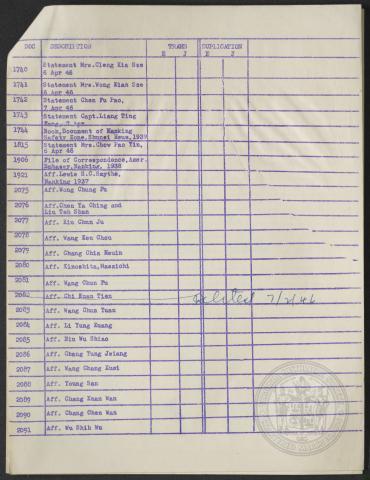 DOC DESCRIPTION TRANS DUPLICATION
E J E J
1740 Statement Mrs.Cieng Kia Sze
6 Apr 46
1741 Statement Mrs.Wong Kian Sze
6 Apr 46
1742 Statement Chen Fu Pao,
7 Apr 46
1743 Statement Capt.Liang Ting
7 Apr
1744 Book,Document of Nanking
Safety Zone, News,1939
1815 Statement Mrs.Chow Pao Yin,
6 Apr 46
1906 File of Correspondence,Amer.
Embassy,Nanking, 1938
1921 Aff.Lewis S.C.Smythe,
Nanking 1937
2075 Aff.Wong Chung Fu
2076 Aff.Chen Ya Ching and
Liu Teh Shan
2077 Aff. Chun Ju
2078 Aff. Wang Chou
2079 Aff. Chang Chia
2080 Aff. Kinoshita,
2081 Aff. Wang Chun Fu
2082 Aff. Chi Kuan Tien deleted 7/2/46
2083 Aff. Wang Chun Yuan
2084 Aff. Li Yung Kuang
2085 Aff. Wu Shiao
2086 Aff. Chang Tung Jsiang
2087 Aff. Wang Chang Kusi
2088 Aff. Young San
2089 Aff. Chang Kuan Wan
2090 Aff. Chang Chen Wan
2091 Aff. Wu Shih Wu